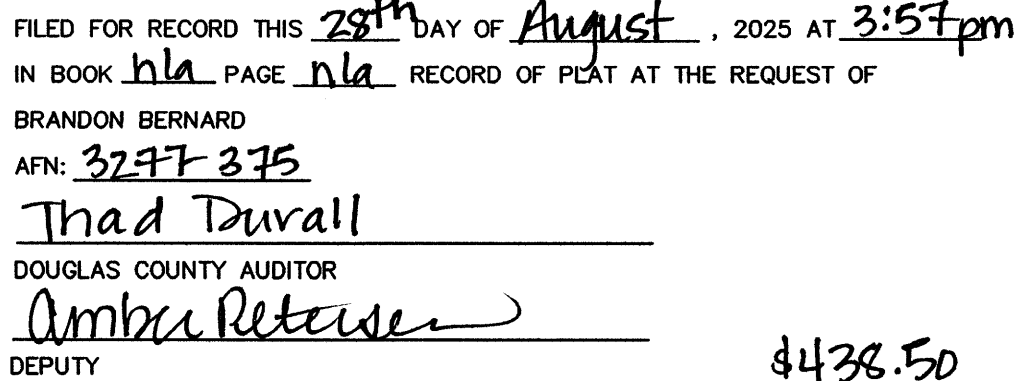 FILED FOR RECORD THIS 28th DAY OF August, 2025 AT 3:57pm
IN BOOK n/a PAGE n/a RECORD OF PLAT AT THE REQUEST OF
BRANDON BERNARD
AFN: 3277375
Thad Duvall
DOUGLAS COUNTY AUDITOR
Amber Petersen
DEPUTY
$438.50